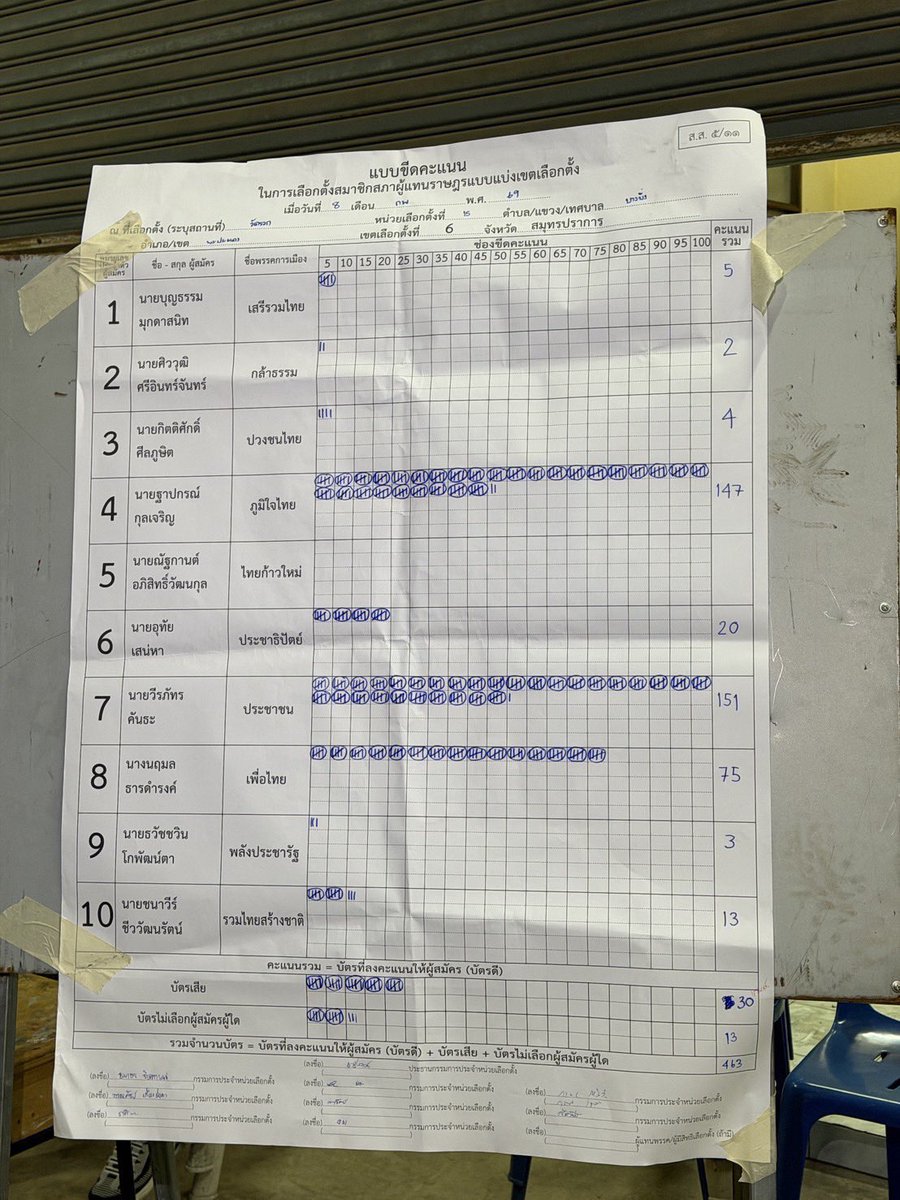 ส.ส. ๕/๑๑
แบบขีดคะแนน
ในการเลือกตั้งสมาชิกสภาผู้แทนราษฎรแบบแบ่งเขตเลือกตั้ง
เมื่อวันที่ 8 เดือน กพ พ.ศ. 69
ณ ที่เลือกตั้ง (ระบุสถานที่) หน่วยเลือกตั้งที่ 15 ตำบล/แขวง/เทศบาล
อำเภอ/เขต เขตเลือกตั้งที่ 6 จังหวัด สมุทรปราการ
ชื่อ - สกุล ผู้สมัคร ชื่อพรรคการเมือง ช่องขีดคะแนน คะแนนรวม
5 10 15 20 25 30 35 40 45 50 55 60 65 70 75 80 85 90 95 100
1 นายบุญธรรม มุกดาสนิท เสรีรวมไทย 5
2 นายศิววุฒิ ศรีอินทร์จันทร์ กล้าธรรม 2
3 นายกิตติศักดิ์ ศีลภูษิต ปวงชนไทย 4
4 นายฐาปกรณ์ กุลเจริญ ภูมิใจไทย 147
5 นายณัฐกานต์ อภิสิทธิ์วัฒนกุล ไทยก้าวใหม่
6 นายอุทัย เสน่หา ประชาธิปัตย์ 20
7 นายวีรภัทร คันธะ ประชาชน 151
8 นางนฤมล ธารดำรงค์ เพื่อไทย 75
9 นายธวัชชวิน โกพัฒน์ตา พลังประชารัฐ 3
10 นายชนาวีร์ ชีววัฒนรัตน์ รวมไทยสร้างชาติ 13
คะแนนรวม = บัตรที่ลงคะแนนให้ผู้สมัคร (บัตรดี)
บัตรเสีย 30
บัตรไม่เลือกผู้สมัครผู้ใด 13
รวมจำนวนบัตร = บัตรที่ลงคะแนนให้ผู้สมัคร (บัตรดี) + บัตรเสีย + บัตรไม่เลือกผู้สมัครผู้ใด 463
(ลงชื่อ) กรรมการประจำหน่วยเลือกตั้ง (ลงชื่อ) ประธานกรรมการประจำหน่วยเลือกตั้ง
(ลงชื่อ) กรรมการประจำหน่วยเลือกตั้ง (ลงชื่อ) กรรมการประจำหน่วยเลือกตั้ง (ลงชื่อ) กรรมการประจำหน่วยเลือกตั้ง
(ลงชื่อ) กรรมการประจำหน่วยเลือกตั้ง (ลงชื่อ) กรรมการประจำหน่วยเลือกตั้ง (ลงชื่อ) กรรมการประจำหน่วยเลือกตั้ง
(ลงชื่อ) กรรมการประจำหน่วยเลือกตั้ง (ลงชื่อ) ผู้แทนพรรค/ผู้มีสิทธิเลือกตั้ง (ถ้ามี)